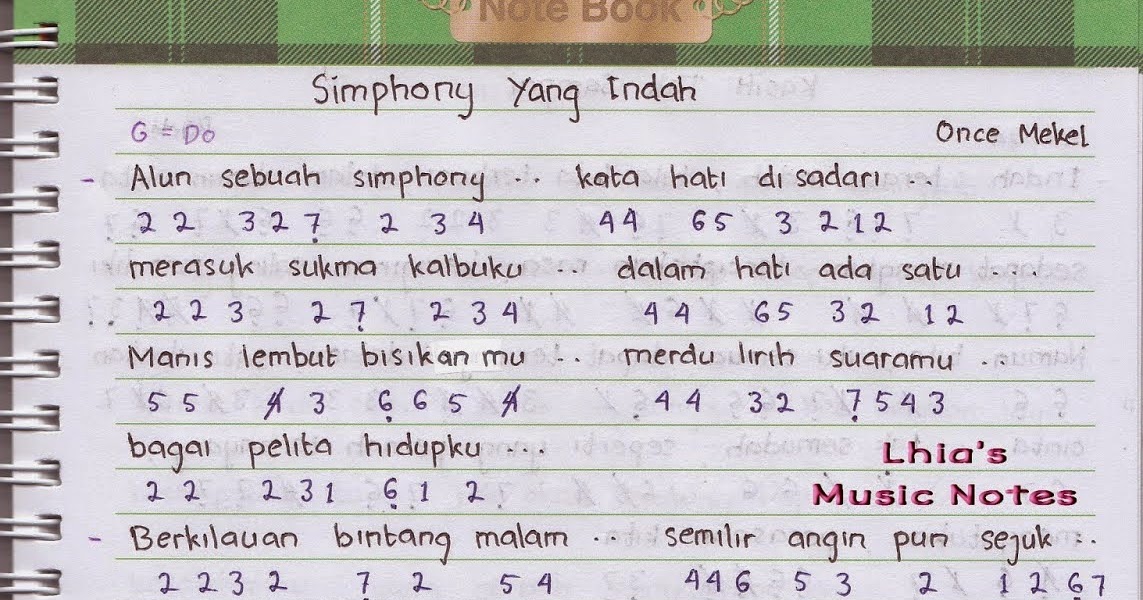 Note Book
Simphony Yang Indah
G = Do Once Mekel
- Alun sebuah simphony .. kata hati di sadari ..
2 2 3 2 7̣ 2 3 4 4 4 6 5 3 2 1 2
merasuk sukma kalbuku ... dalam hati ada satu ....
2 2 3 2 7̣ 2 3 4 4 4 6 5 3 2 1 2
Manis lembut bisikan mu .. merdu lirih suaramu ..
5 5 4̸ 3 6̣ 6 5 4̸ 4 4 3 2 7̣ 5 4 3
bagai pelita hidupku ....
Lhia's
2 2 2 3 1 6̣ 1 2
Music Notes
- Berkilauan bintang malam .. semilir angin pun sejuk ..
2 2 3 2 7̣ 2 5 4 4 4 6 5 3 2 1 2 6̣ 7